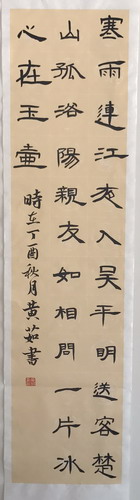 寒雨連江夜入吴平明送客楚
山孤洛陽親友如相問一片冰
心在玉壺
時在丁酉秋月黄茹書